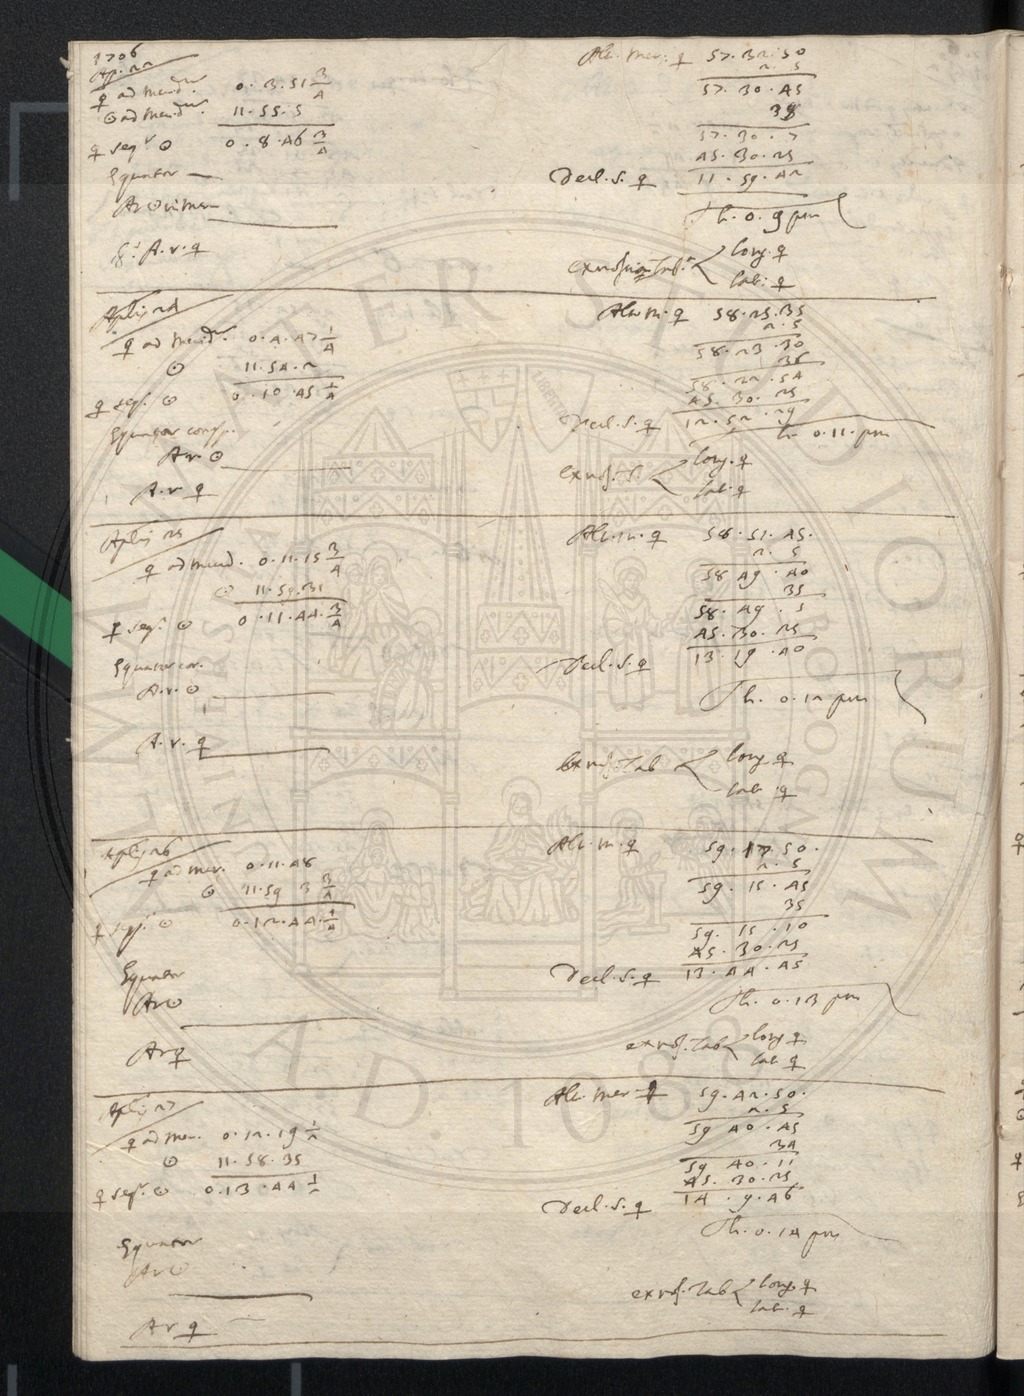 1706
Ap. 22
♀ ad merid. 0. 3. 51 3/4
☉ ad merid. 11. 55. 5
♀ seq.r ☉ 0. 8. 46 3/4
Equator
AR ☉ in mer.
A. r. ♀
Alt. mer. ♀ 57. 32. 50
2. 5
57. 30. 45
38
57. 30. 7
45. 30. 25
Decl. s. ♀ 11. 59. 42
h. 0. 9 pm
long. ♀
lat. ♀
Aplis 24
♀ ad merid. 0. 4. 47 1/4
☉ 11. 54. 2
♀ seq. ☉ 0. 10. 45 1/4
Ar. ☉
A. r. ♀
Alt. m. ♀ 58. 25. 35
2. 5
58. 23. 30
36
58. 22. 54
45. 30. 25
Decl. s. ♀ 12. 52. 29
h. 0. 11. pm
long. ♀
lat. ♀
Aplis 25
♀ ad merid. 0. 11. 15 3/4
☉ 11. 59. 31
♀ seq.r ☉ 0. 11. 44. 3/4
Equator cor.
A. r. ☉
A. r. ♀
Alt. m. ♀ 58. 51. 45.
2. 5
58 49. 40
35
58. 49. 5
45. 30. 25
Decl. s. ♀ 13. 19. 40
h. 0. 12 pm
long. ♀
lat. ♀
Aplis 26
♀ ad mer. 0. 11. 48
☉ 11. 59 3 3/4
♀ seq.r ☉ 0. 12. 44. 1/4
Equator
Ar ☉
Ar ♀
Alt. m. ♀ 59. 17. 50.
2. 5
59. 15. 45
35
59. 15. 10
45. 30. 25
Decl. s. ♀ 13. 44. 45
h. 0. 13 pm
long ♀
lat. ♀
Aplis 27
♀ ad mer. 0. 12. 19 1/2
☉ 11. 58. 35
♀ seq.r ☉ 0. 13. 44 1/2
Equator
Ar ☉
Ar ♀
Alt. mer ♀ 59. 42. 50.
2. 5
59 40. 45
34
59 40. 11
45. 30. 25
Decl. s. ♀ 14. 9. 46
h. 0. 14 pm
long. ♀
lat. ♀
ALMA MATER STUDIORUM
A.D. 1088